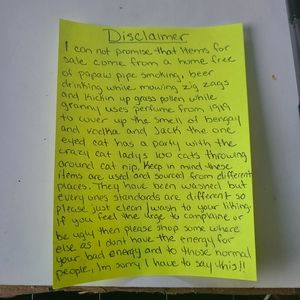 Disclaimer
I can not promise that Items for
sale come from a home free
of papaw pipe smoking, beer
drinking while mowing zig zags
and kickin up grass pollen while
granny uses perfume from 1919
to cover up the smell of bengay
and vodka and Jack the one
eyed cat has a party with the
crazy cat ladys 100 cats throwing
around cat nip, Keep in mind these
items are used and sourced from different
places. They have been washed but
every ones standards are different so
please just clean/wash to your liking.
If you feel the urge to complaine or
be ugly then please shop some where
else as I dont have the energy for
your bad energy and to those normal
people, Im sorry I have to say this!!